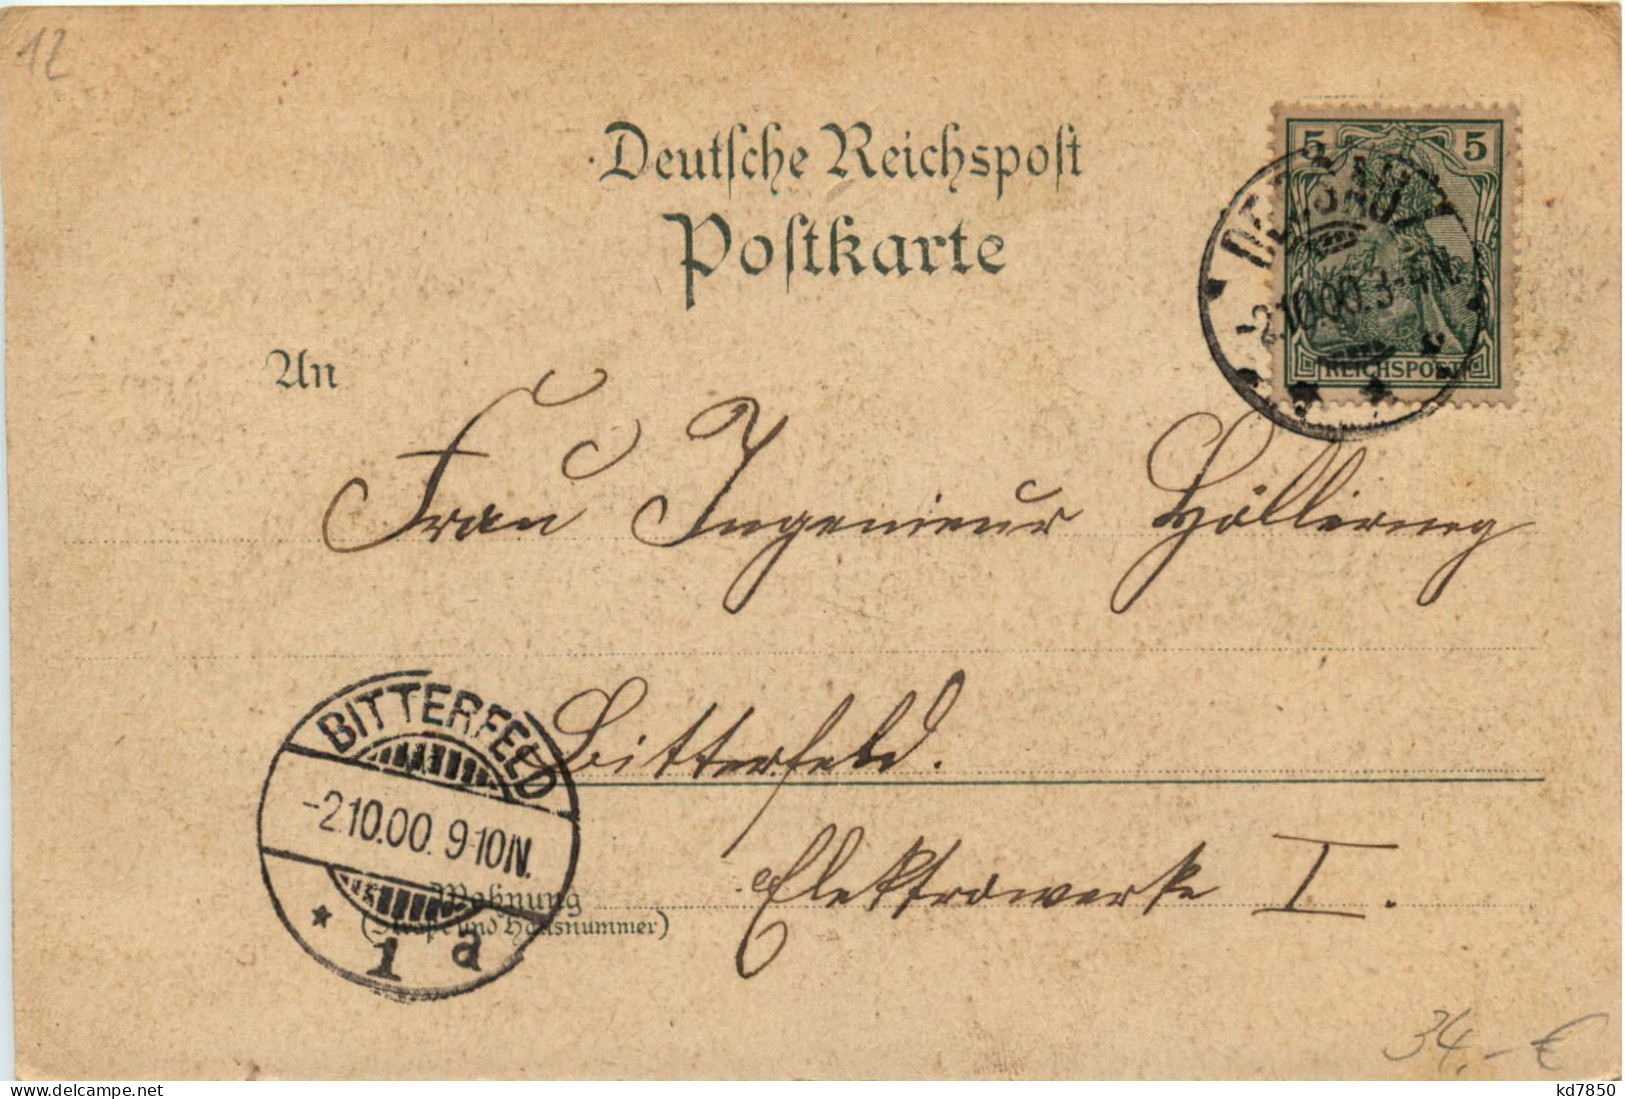 12
Deutsche Reichspost
Postkarte
5 5
DESSAU 1
-2.10.00. 3-4N.
REICHSPOST
An
Frau Ingenieur
BITTERFELD
-2.10.00. 9-10N.
* 1 a
Bitterfeld.
Wohnung
(Straße und Hausnummer)
Elektrowerke I.
34.-€
kd7850